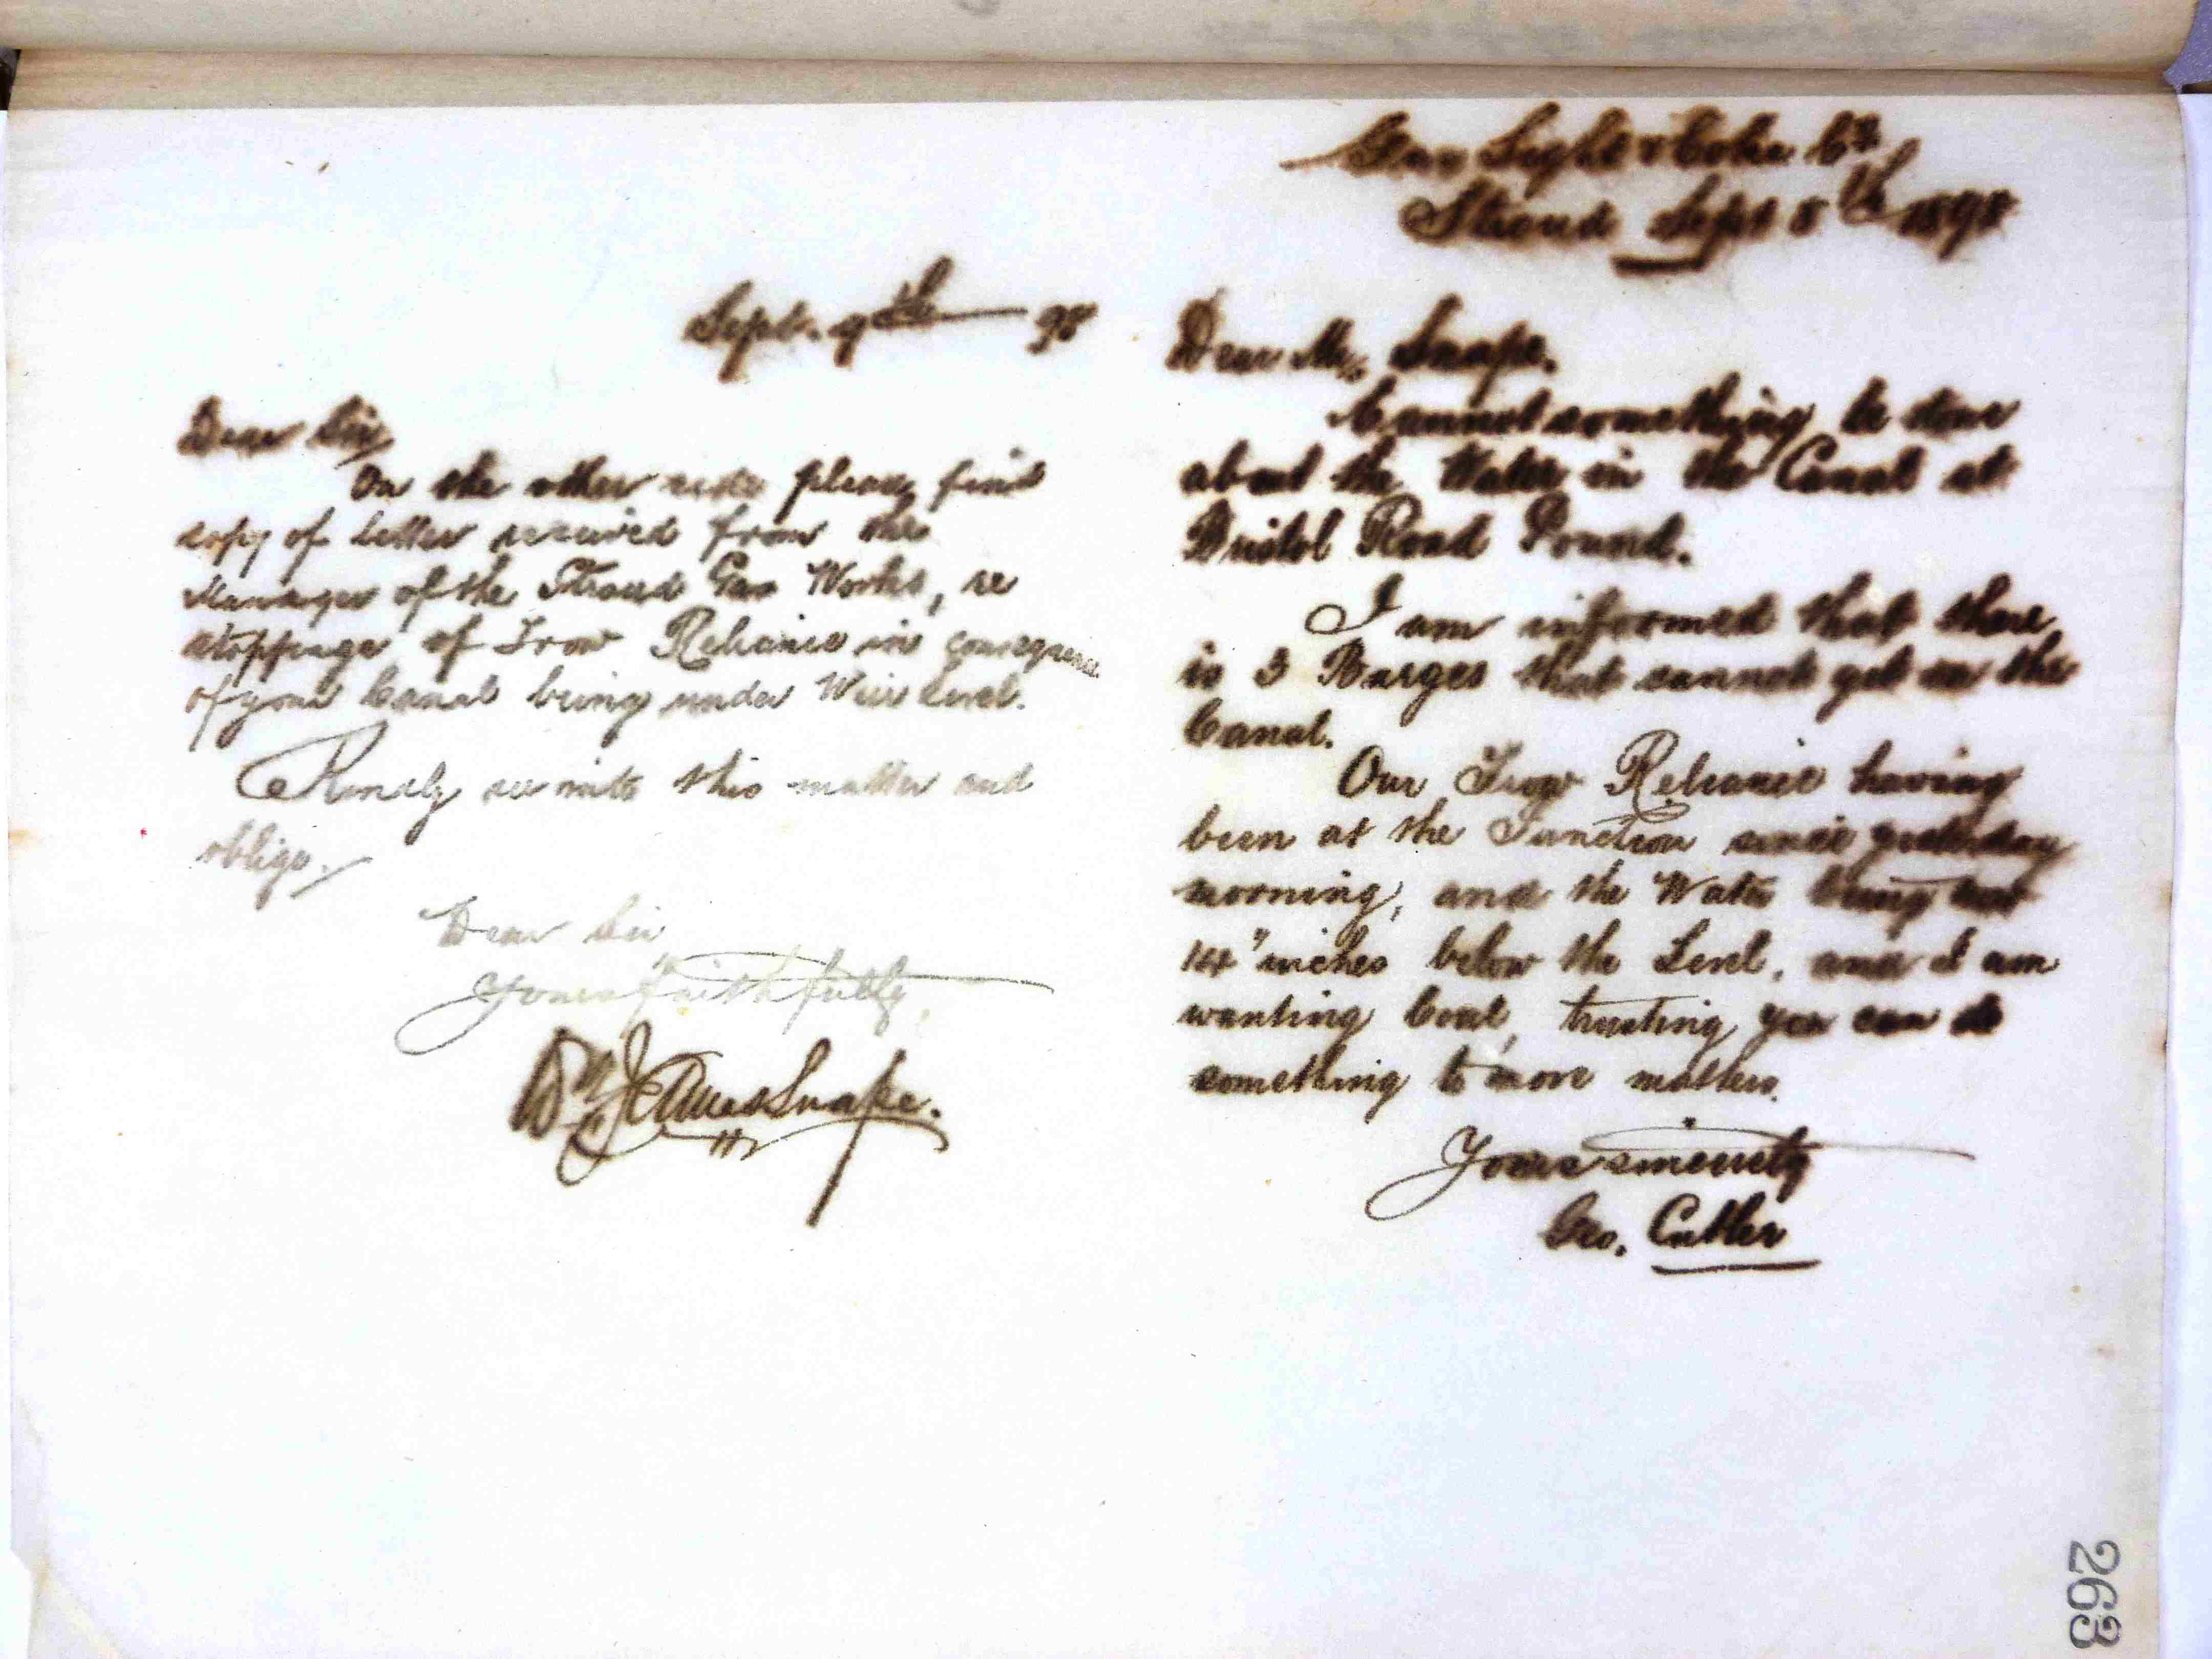 Sept. 9th 98
Dear Sir,
On the other side please find
copy of letter received from the
Manager of the Stroud Gas Works, re
stoppage of Trow Reliance in consequence
of your Canal being under Weir Level.
Kindly see into this matter and
oblige.
Dear Sir
Yours faithfully,
Wm James Snape.
Gas Light & Coke Co.
Stroud Sept 8th 1898
Dear Mr. Snape.
Cannot something be done
about the Water in the Canal at
Bristol Road Pound.
I am informed that there
is 3 Barges that cannot get on the
Canal.
Our Trow Reliance having
been at the Junction since yesterday
morning, and the Water being now
14" inches below the Level, and I am
wanting Coal, trusting you can do
something to move matters.
Yours sincerely
Geo. Cutler
263